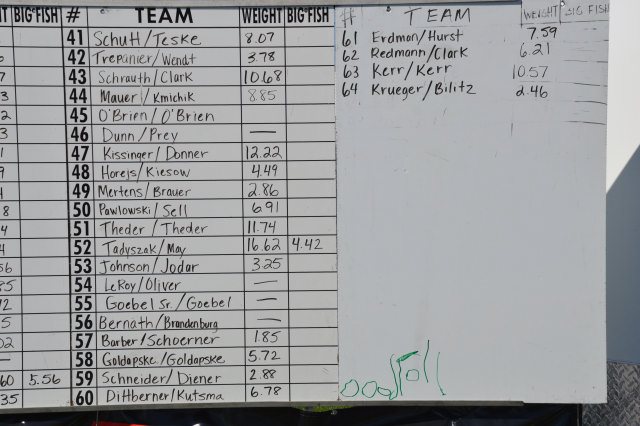 T BIG FISH # TEAM WEIGHT BIG FISH
41 Schutl/Teske 8.07
42 Trepanier/Wendt 3.78
43 Schrauth/Clark 10.68
44 Mauer/Kmichik 8.85
45 O'Brien/O'Brien
46 Dunn/Prey —
47 Kissinger/Donner 12.22
48 Horejs/Kiesow 4.49
49 Mertens/Brauer 2.86
50 Pawlowski/Sell 6.91
51 Theder/Theder 11.74
52 Tadyszak/May 16.62 4.42
53 Johnson/Jodar 3.25
54 LeRoy/Oliver —
55 Goebel Sr./Goebel —
56 Bernath/Brandenburg —
57 Barber/Schoerner 1.85
58 Goldapske/Goldapske 5.72
60 5.56 59 Schneider/Diener 2.88
35 60 Dittberner/Kutsma 6.78
# TEAM WEIGHT BIG FISH
61 Erdman/Hurst 7.59
62 Redmann/Clark 6.21
63 Kerr/Kerr 10.57
64 Krueger/Bilitz 2.46